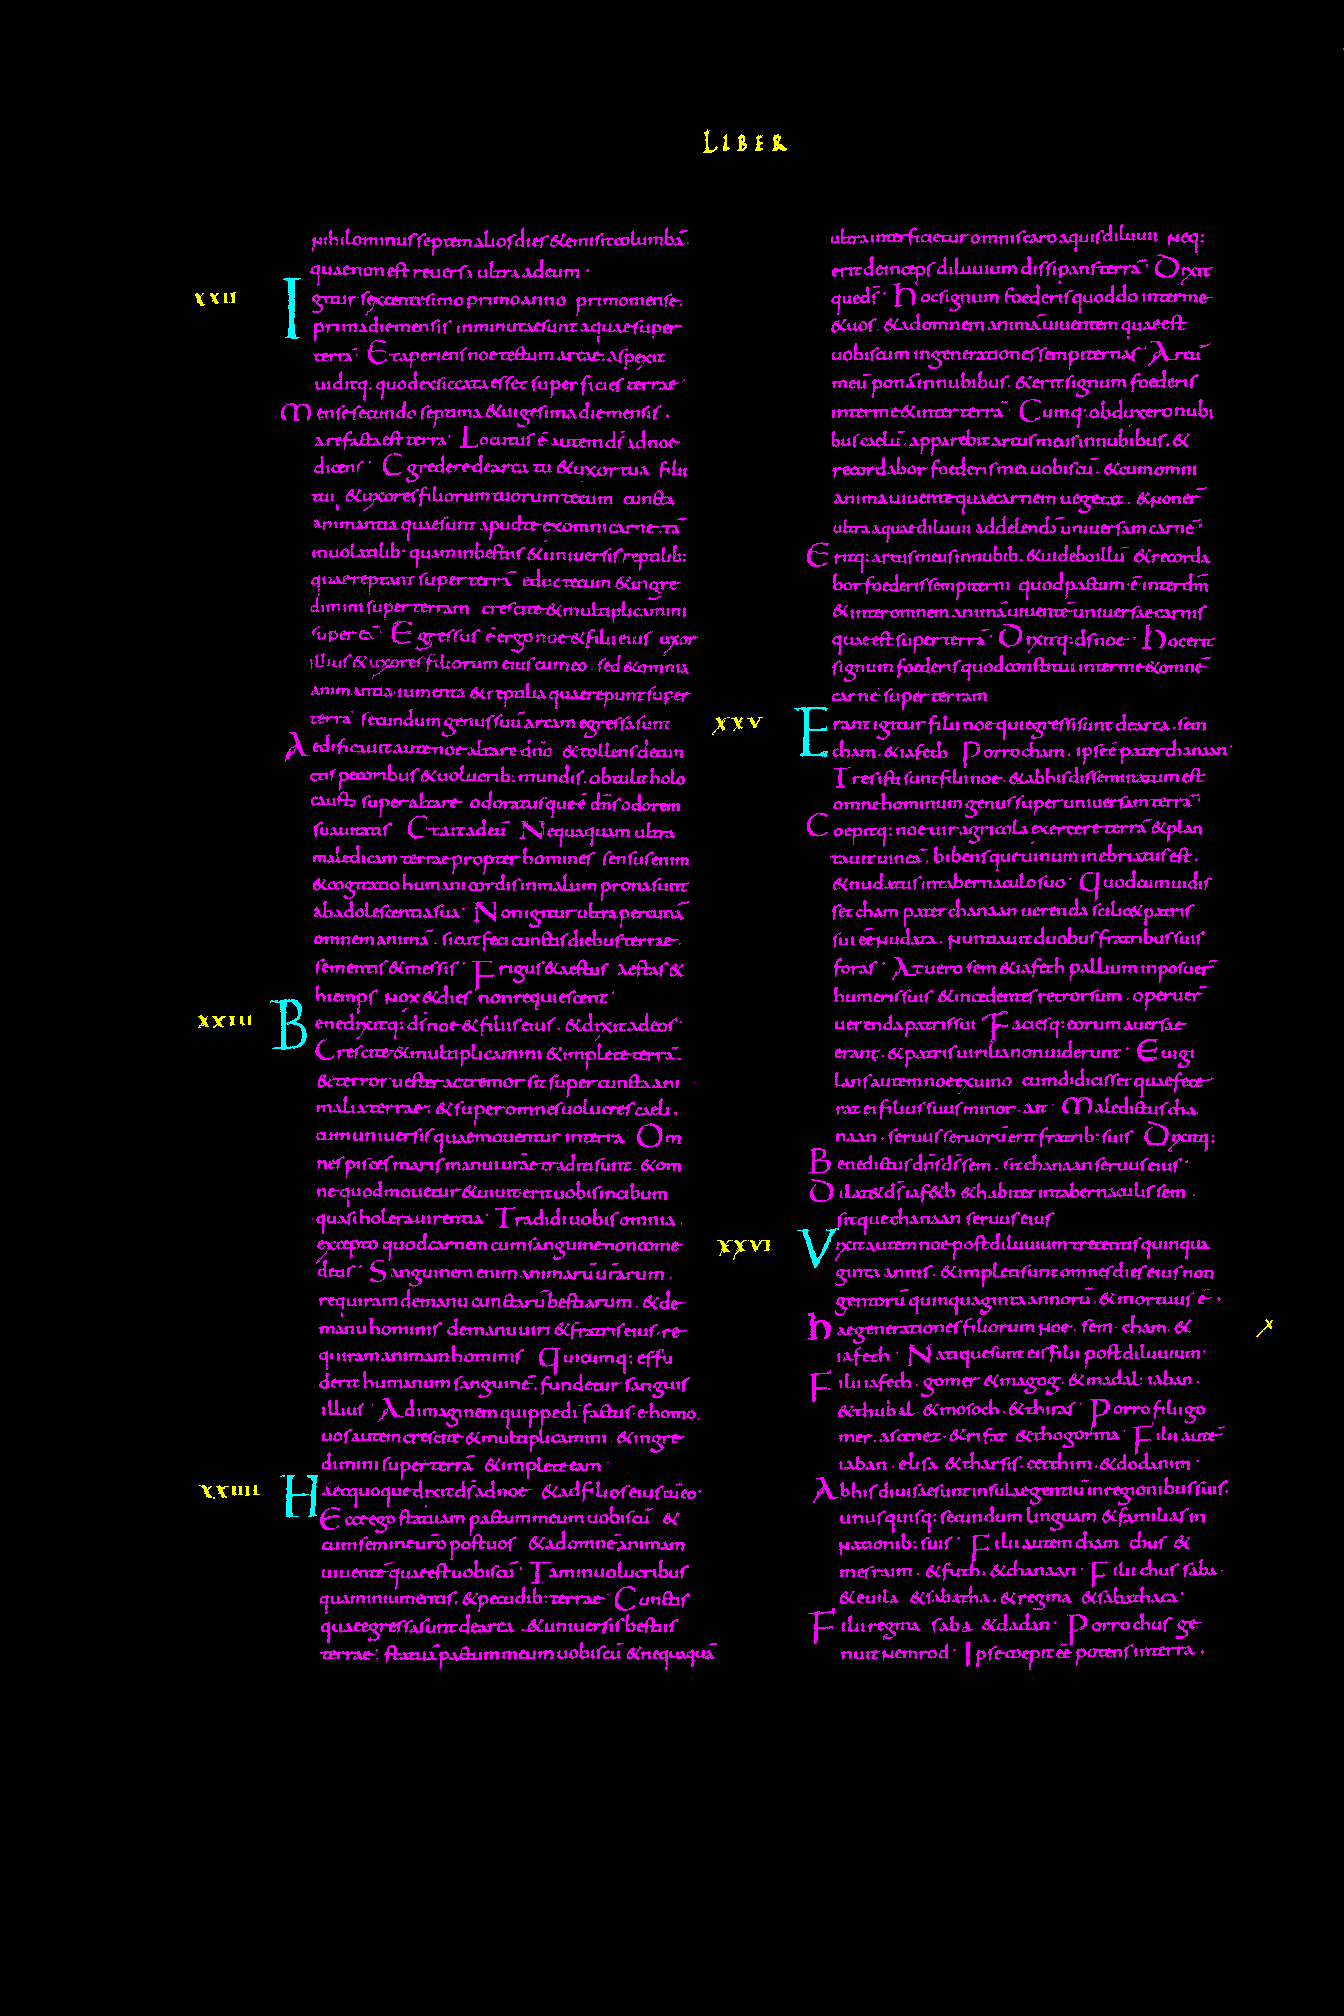 LIBER
nihilominus septem alios dies & emisit columbā.
quae non est reuersa ultra ad eum·
XXII
Igitur sexcentesimo primo anno primo mense.
prima die mensis inminutae sunt aquae super
terrā· Et aperiens noe tectum arcae. aspexit
uiditq; quod exsiccata esset superficies terrae·
Mense secundo septima & uigesima die mensis.
arefacta est terra· Locutus ē autem ds ad noe
dicens· Egredere de arca tu & uxor tua filii
tui & uxores filiorum tuorum tecum cuncta
animantia quae sunt apud te ex omni carne. tā
in uolatilib· quam in bestiis & in uniuersis reptilib:
quae reptant super terrā educ tecum & ingre
dimini super terram crescite & multiplicamini
super eā· Egressus ē ergo noe & filii eius uxor
illius & uxores filiorum eius cum eo. sed & omnia
animantia iumenta & reptilia quae repunt super
terrā secundum genus suū arcam egressa sunt
Aedificauit autē noe altare dnō & tollens de cun
ctis pecoribus & uolucrib: mundis. obtulit holo
causta super altare odoratusque ē dns odorem
suauitatis Et ait ad eū Nequaquam ultra
maledicam terrae propter homines sensus enim
& cogitatio humani cordis in malum prona sunt
ab adolescentia sua· Non igitur ultra percutiā
omnem animā. sicut feci cunctis diebus terrae.
sementis & messis· Frigus & aestus aestas &
hiemps nox & dies non requiescent·
XXIII
Benedixitq; ds noe & filiis eius. & dixit ad eos·
Crescite & multiplicamini & implete terrā.
& terror uester ac tremor sit super cuncta ani
malia terrae. & super omnes uolucres caeli.
cum uniuersis quae mouentur in terra Om
nes pisces maris manui urāe traditi sunt. & om
ne quod mouetur & uiuit erit uobis in cibum
quasi holera uirentia· Tradidi uobis omnia.
excepto quod carnem cum sanguine non come
detis· Sanguinem enim animarū urārum.
requiram de manu cunctarū bestiarum. & de
manu hominis de manu uiri & fratris eius. re
quiram animam hominis Quicumq; effu
derit humanum sanguinē. fundetur sanguis
illius Ad imaginem quippe di factus ē homo.
uos autem crescite & multiplicamini & ingre
dimini super terrā & implete eam·
XXIIII
Haec quoque dixit ds ad noe & ad filios eius cū eo·
Ecce ego statuam pactum meum uobiscū &
cum semine uro post uos & ad omnē animam
uiuentē quae est uobiscū· Tam in uolucribus
quam in iumentis. & pecudib: terrae· Cunctis
quae egressa sunt de arca & uniuersis bestiis
terrae. statuā pactum meum uobiscū & nequaquā
ultra interficietur omnis caro aquis diluuii neq;
erit deinceps diluuium dissipans terrā· Dixit
que ds· Hoc signum foederis quod do inter me
& uos. & ad omnem animā uiuentem quae est
uobiscum in generationes sempiternas· Arcū
meū ponā in nubibus. & erit signum foederis
inter me & inter terrā· Cumq; obduxero nubi
bus caelū. apparebit arcus meus in nubibus. &
recordabor foederis mei uobiscū. & cum omni
anima uiuente quae carnem uegetat. & non er̄
ultra aquae diluuii ad delendā uniuersam carnē·
Eritq; arcus meus in nubib. & uidebo illū & recorda
bor foederis sempiterni quod pactum ē inter dm̄
& inter omnem animā uiuentē uniuersae carnis
quae est super terrā· Dixitq; ds noe· Hoc erit
signum foederis quod constitui inter me & omnē
carnē super terram
XXV
Erant igitur filii noe qui egressi sunt de arca. sem
cham. & iafeth Porro cham. ipse ē pater chanaan·
Tres isti sunt filii noe. & ab his disseminatum est
omne hominum genus super uniuersam terrā·
Coepitq; noe uir agricola exercere terrā & plan
tauit uineā. bibensque uinum inebriatus est.
& nudatus in tabernaculo suo· Quod cum uidis
set cham pater chanaan uerenda scilic& patris
sui eē nudata. nuntiauit duobus fratribus suis
foras· At uero sem & iafeth pallium inposuer̄
humeris suis & incedentes retrorsum. operuer̄
uerenda patris sui Faciesq; eorum auersae
erant. & patris uirilia non uiderunt· Euigi
lans autem noe ex uino cum didicisset quae fece
rat ei filius suus minor. ait· Maledictus cha
naan. seruus seruorū erit fratrib: suis Dixitq;
Benedictus dns ds sem. sit chanaan seruus eius·
Dilat& ds iaf&h & habitet in tabernaculis sem.
sitque chanaan seruus eius
XXVI
Vixit autem noe post diluuium trecentis quinqua
ginta annis. & impleti sunt omnes dies eius non
gentorū quinquaginta annorū. & mortuus ē.
Hae generationes filiorum noe. sem cham. &
iafeth· Natique sunt eis filii post diluuium·
Filii iafeth. gomer & magog. & madai· iaban.
& thubal & mosoch. & thiras· Porro filii go
mer. ascenez. & rifat & thogorma· Filii autē
iaban. elisa & tharsis. cetthim. & dodanim·
Ab his diuisae sunt insulae gentiū in regionibus suis.
unusquisq; secundum linguam & familias in
nationib: suis· Filii autem cham chus &
mesraim. & futh. & chanaan· Filii chus saba·
& euila & sabatha. & regma & sabathaca·
Filii regma saba & dadan· Porro chus ge
nuit nemrod· Ipse coepit eē potens in terra.